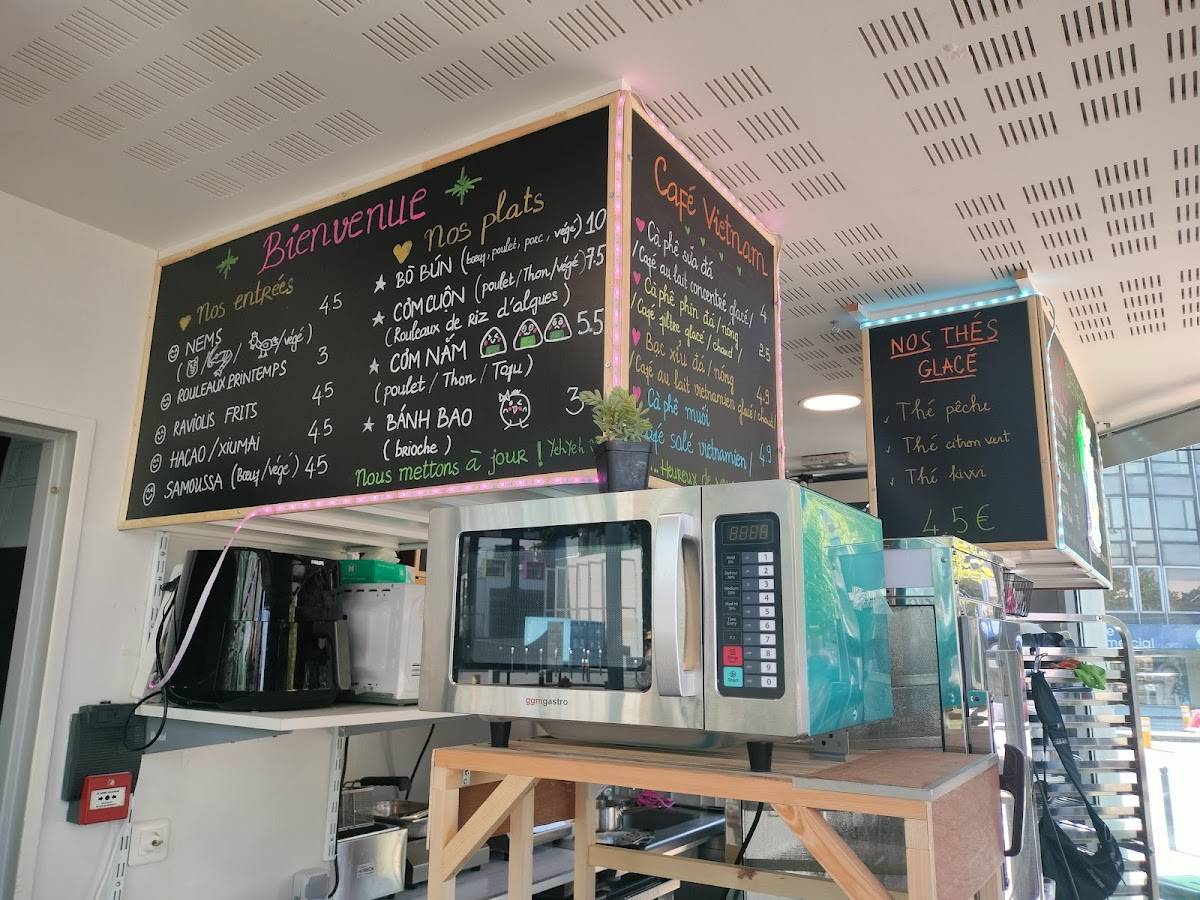 Bienvenue
Nos entrées
NEMS 4.5
( / végé)
ROULEAUX PRINTEMPS 3
RAVIOLIS FRITS 4.5
HACAO / XIUMAI 4.5
SAMOUSSA (Bœuf/végé) 4.5
Nos plats
BÒ BÚN (bœuf, poulet, porc, végé) 10
CƠM CUỘN (poulet / Thon / végé) 7.5
(Rouleaux de Riz d'algues)
CƠM NẮM 5.5
(poulet / Thon / Tofu)
BÁNH BAO 3
(brioche)
Nous mettons à jour ! YehYeh
Café Vietnam
Cà phê sữa đá 4
/Café au lait concentré glacé/
Cà phê phin đá / nóng 2.5
/Café filtre glacé / chaud /
Bạc xỉu đá / nóng 4.9
/Café au lait vietnamien glacé / chaud/
Cà phê muối 4.9
Café salé vietnamien/
... Heureux de
NOS THÉS
GLACÉ
Thé pêche
Thé citron vert
Thé kiwi
4.5€
ggmgastro
1
2
3
4
5
6
7
8
9
0
Start